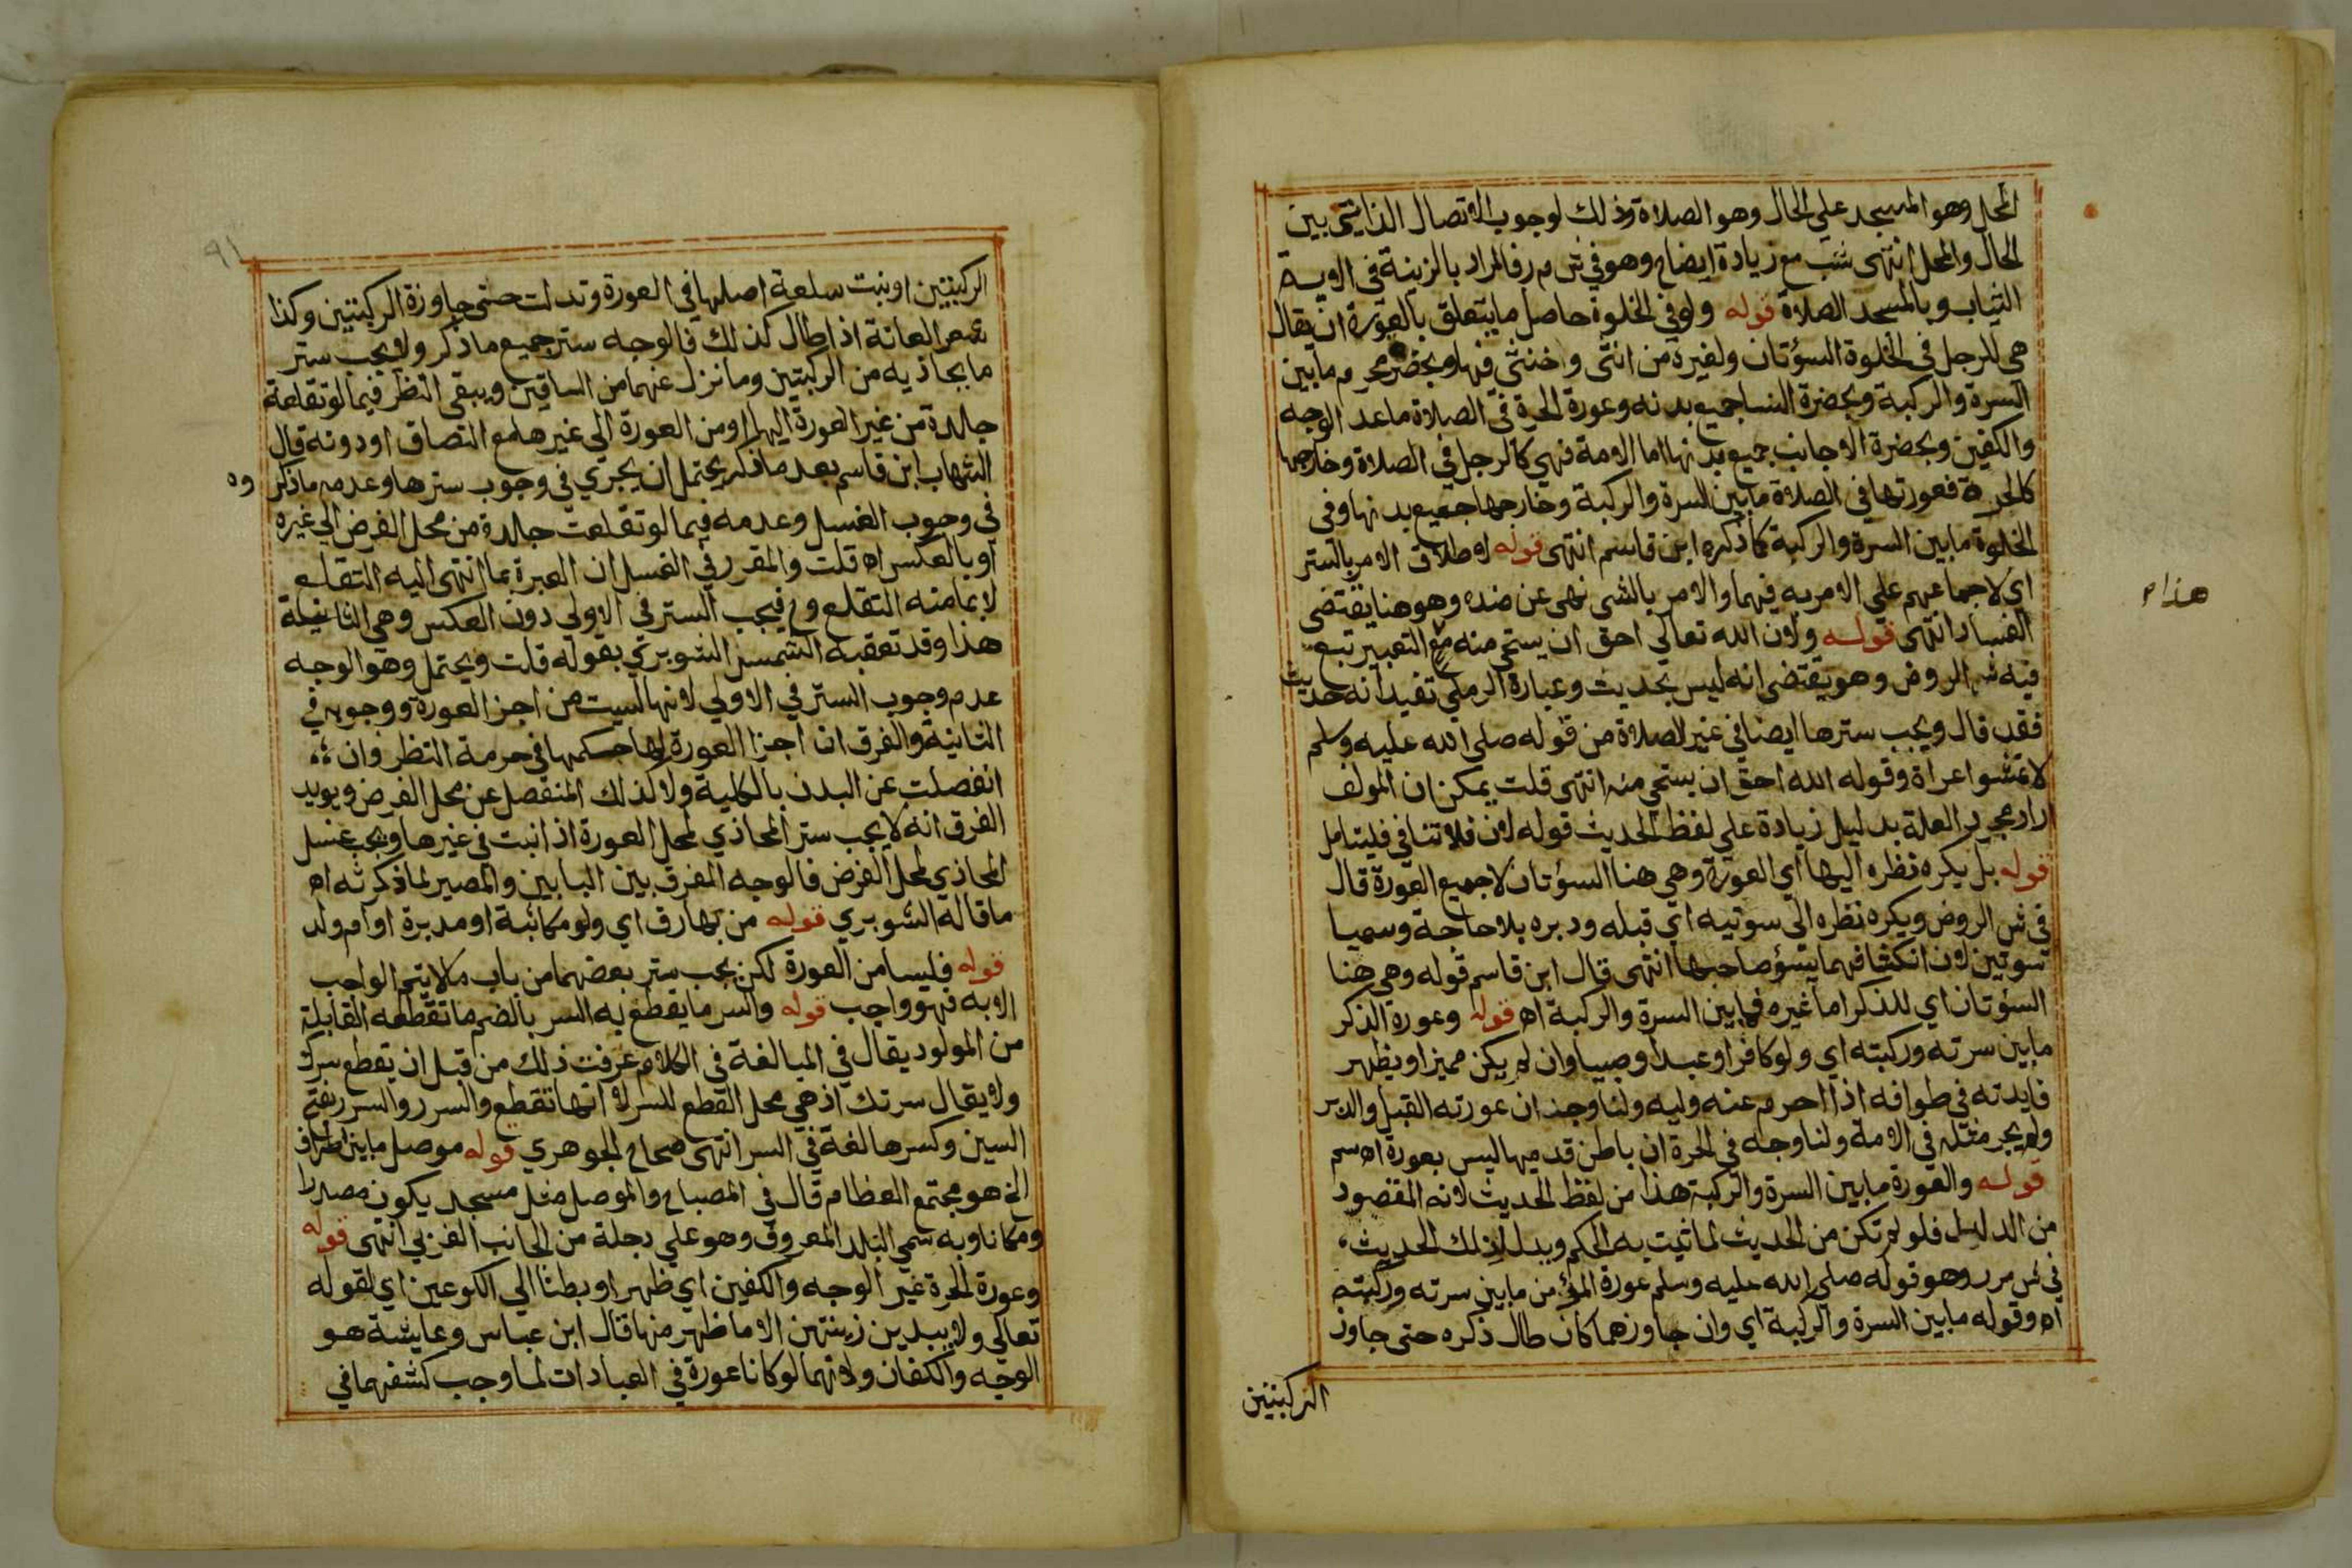 المحل وهو المسجد علي الحال وهو الصلاة وذلك لوجوب الاتصال الذاتي بين
الحال والمحل انتهى شب مع زيادة ايضاح وهو في ش م ر فالمراد بالزينة في الاية
الثياب وبالمسجد الصلاة قوله ولو في الخلوة حاصل ما يتعلق بالعورة ان يقال
هي للرجل في الخلوة السؤتان ولغيره من انثى وخنثى فيها وبحضرة محرم ما بين
السرة والركبة وبحضرة النسا جميع بدنه وعورة الحرة في الصلاة ماعد الوجه
والكفين وبحضرة الاجانب جميع بدنها اما الامة فهي كالرجل في الصلاة وخارجها
كالحرة فعورتها في الصلاة ما بين السرة والركبة وخارجها جميع بدنها وفى
الخلوة ما بين السرة والركبة كما ذكره ابن قاسم انتهى قوله لاطلاق الامر بالتستر
اي لاجماعهم علي الامر به فيهما والامر بالشى نهى عن ضده وهو هنا يقتضى
هذا م
الفساد انتهى قوله ولان الله تعالى احق ان يستحي منه مع التعبير تبع
فيه ش الروض وهو يقتضى انه ليس بحديث وعبارة الرملي تفيد انه حديث
فقد قال ويجب سترها ايضا في غير الصلاة من قوله صلى الله عليه وسلم
لا تمشوا عراة وقوله الله احق ان يستحي منه انتهى قلت يمكن ان المولف
اراد مجرد العلة بدليل زيادة علي لفظ الحديث قوله لان فلا تنافي فليتامل
قوله بل يكره نظره اليها اي العورة وهي هنا السؤتان لا جميع العورة قال
في ش الروض ويكره نظره الى سوتيه اي قبله ودبره بلا حاجة وسميا
سوتين لان انكشافهما يسؤ صاحبها انتهى قال ابن قاسم قوله وهي هنا
السؤتان اي للذكر اما غيره فما بين السرة والركبة اه قوله وعورة الذكر
ما بين سرته وركبته اي ولو كافرا او عبدا وصبيا وان لم يكن مميزا ويظهر
فايدته في طوافه اذا احرم عنه وليه ولنا وجه ان عورته القبل والدبر
ولم يجر مثله في الامة ولنا وجه في الحرة ان باطن قدميها ليس بعورة اه سم
قوله والعورة ما بين السرة والركبة هذا من لفظ الحديث لانه المقصود
من الدليل فلو لم تكن من الحديث لما ثبت به الحكم ويدل لذلك الحديث
في ش م ر وهو قوله صلي الله عليه وسلم عورة المؤمن ما بين سرته وركبته
اه وقوله ما بين السرة والركبة اي وان جاوزهما كان طال ذكره حتى جاوز
الركبتين
٩١
الركبتين او نبت سلعة اصلها في العورة وتدلت حتى جاوزة الركبتين وكذا
شعر العانة اذا طال كذلك فالوجه ستر جميع ما ذكر ولا يجب ستر
ما يحاذيه من الركبتين وما نزل عنهما من الساقين ويبقى النظر فيما لو تقلعة
جلدة من غير العورة اليها او من العورة الي غيرها مع التصاق او دونه قال
الشهاب ابن قاسم بعد ما ذكر يحتمل ان يجري في وجوب سترها وعدمه ما ذكروه
في وجوب الغسل وعدمه فيما لو تقلعت جلدة من محل الفرض الي غيره
او بالعكس اه قلت والمقرر في الغسل ان العبرة بما انتهى اليه التقلع
لا بما منه التقلع وح فيجب الستر في الاولي دون العكس وهي الثانية
هذا وقد تعقبه الشمس الشوبري بقوله قلت ويحتمل وهو الوجه
عدم وجوب الستر في الاولي لانها ليست من اجزا العورة ووجوبه في
الثانية والفرق ان اجزا العورة لها حكمها في حرمة النظر وان
انفصلت عن البدن بالكلية ولا كذلك المنفصل عن محل الفرض ويويد
الفرق انه لا يجب ستر المحاذي لمحل العورة اذا نبت في غيرها ويجب غسل
المحاذي لمحل الفرض فالوجه المفرق بين البابين والمصير لما ذكرته اه
ما قاله الشوبري قوله من بها رق اي ولو مكاتبة او مدبرة او ام ولد
قوله فليسا من العورة لكن يجب ستر بعضهما من باب ما لا يتم الواجب
الا به فهو واجب قوله والسر ما يقطع به السر بالضم ما تقطعه القابلة
من المولود يقال في المبالغة في الكلام عرفت ذلك من قبل ان يقطع سرك
ولا يقال سرتك اذ هي محل القطع للسر لا انها تقطع والسرر والسرر بفتح
السين وكسرها لغة في السر انتهى صحاح الجوهري قوله موصل ما بين اطراف
الخ هو مجتمع العظام قال في المصباح والموصل مثل مسجد يكون مصدرا
ومكانا وبه سمي البلد المعروف وهو علي دجلة من الجانب الغربي انتهى قوله
وعورة الحرة غير الوجه والكفين اي ظهرا وبطنا الي الكوعين اي لقوله
تعالى ولا يبدين زينتهن الا ما ظهر منها قال ابن عباس وعايشة هو
الوجه والكفان ولانهما لو كانا عورة في العبادات لما وجب كشفهما في